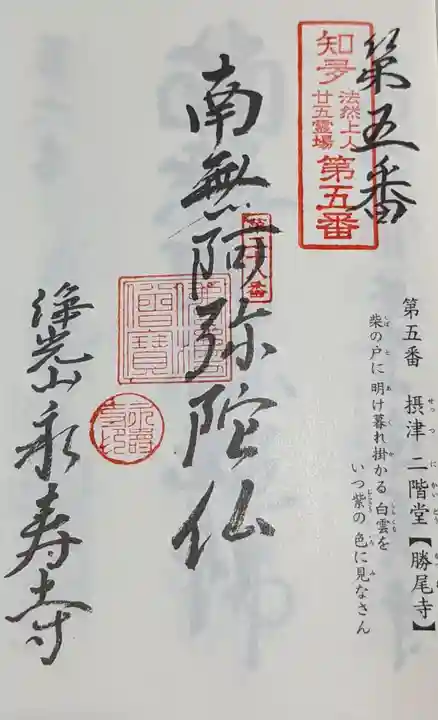 第五番
知多
法然上人
廿五霊場
第五番
第五番 摂津 二階堂【勝尾寺】
柴の戸に 明け暮れ掛かる 白雲を
いつ紫の 色に見なさん
南無阿弥陀仏
浄光山永寿寺